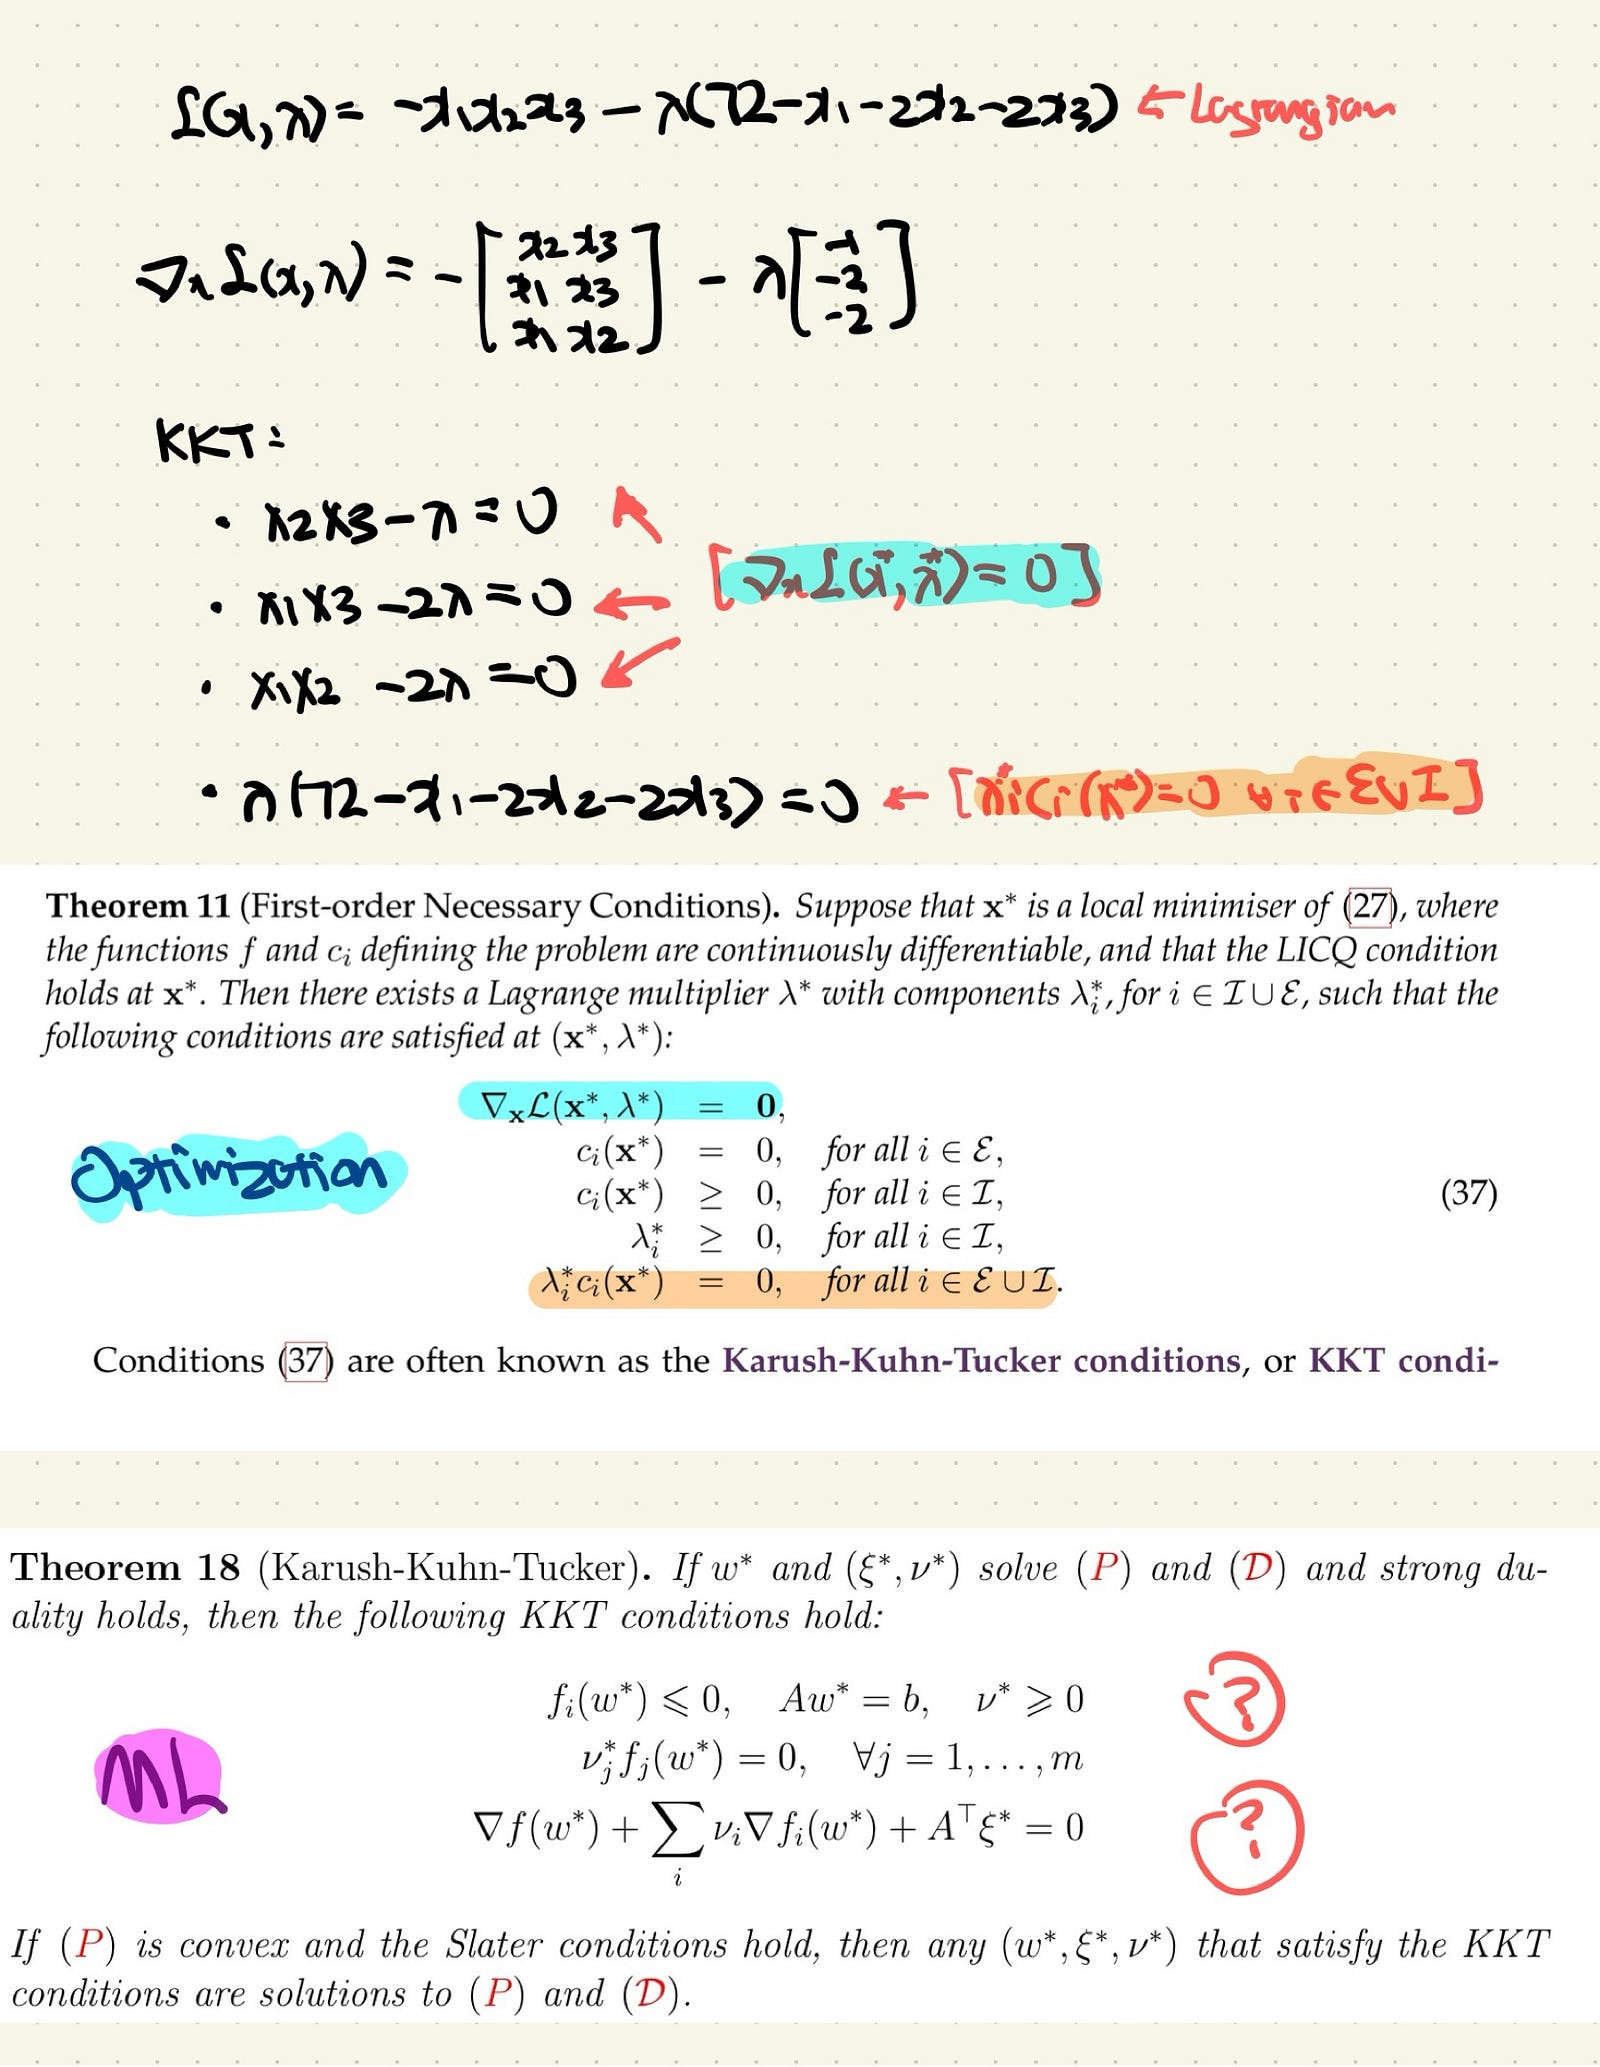 L(x,λ) = -x₁x₂x₃ - λ(72-x₁-2x₂-2x₃) ← Lagrangian
∇ₓL(x,λ) = -[x₂x₃ x₁x₃ x₁x₂] - λ[-1 -2 -2]
KKT:
• x₂x₃ - λ = 0
[∇ₓL(x*,λ*) = 0]
• x₁x₃ - 2λ = 0 ←
• x₁x₂ - 2λ = 0
• λ(72-x₁-2x₂-2x₃) = 0 ← [λ*ᵢcᵢ(x*)=0 ∀i∈ℰ∪ℐ]
Theorem 11 (First-order Necessary Conditions). Suppose that x* is a local minimiser of (27), where
the functions f and cᵢ defining the problem are continuously differentiable, and that the LICQ condition
holds at x*. Then there exists a Lagrange multiplier λ* with components λᵢ*, for i ∈ ℐ ∪ ℰ, such that the
following conditions are satisfied at (x*, λ*):
∇ₓℒ(x*, λ*) = 0,
cᵢ(x*) = 0, for all i ∈ ℰ,
Optimization
cᵢ(x*) ≥ 0, for all i ∈ ℐ, (37)
λᵢ* ≥ 0, for all i ∈ ℐ,
λᵢ*cᵢ(x*) = 0, for all i ∈ ℰ ∪ ℐ.
Conditions (37) are often known as the Karush-Kuhn-Tucker conditions, or KKT condi-
Theorem 18 (Karush-Kuhn-Tucker). If w* and (ξ*, ν*) solve (P) and (D) and strong du-
ality holds, then the following KKT conditions hold:
fᵢ(w*) ⩽ 0, Aw* = b, ν* ⩾ 0 ?
ML
νⱼ*fⱼ(w*) = 0, ∀j = 1, . . . , m
∇f(w*) + ∑ᵢ νᵢ∇fᵢ(w*) + A⊤ξ* = 0 ?
If (P) is convex and the Slater conditions hold, then any (w*, ξ*, ν*) that satisfy the KKT
conditions are solutions to (P) and (D).